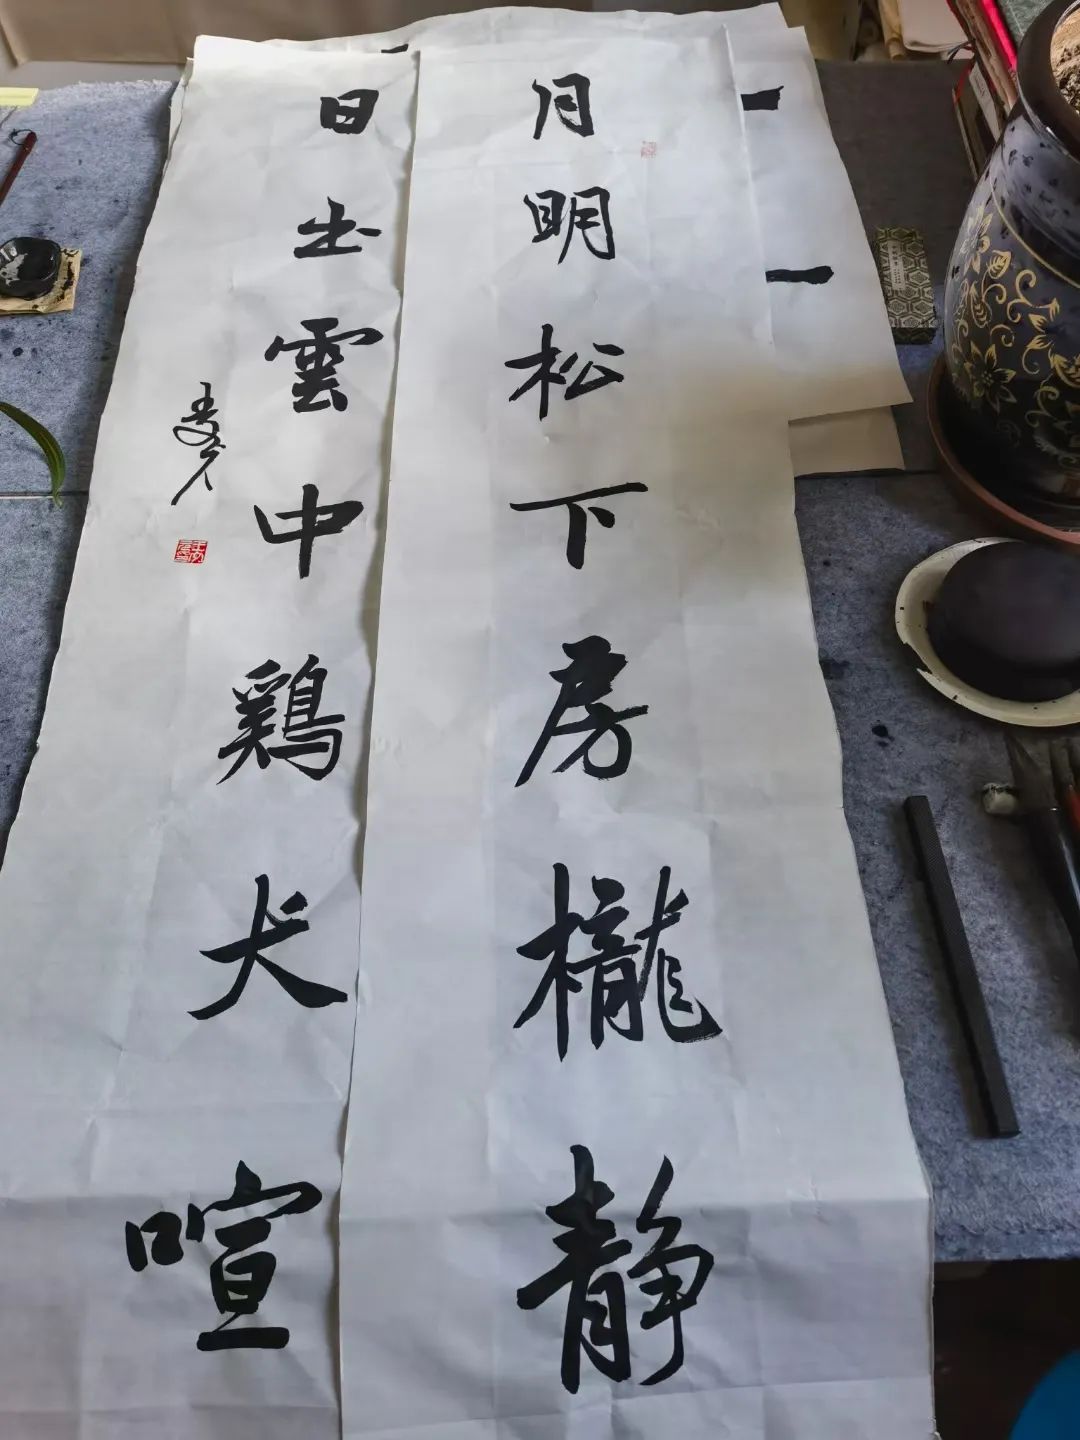 月明松下房櫳静
日出雲中鷄犬喧